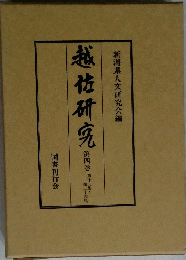 新潟県人文研究会編
越佐研究
第四巻
国書刊行会